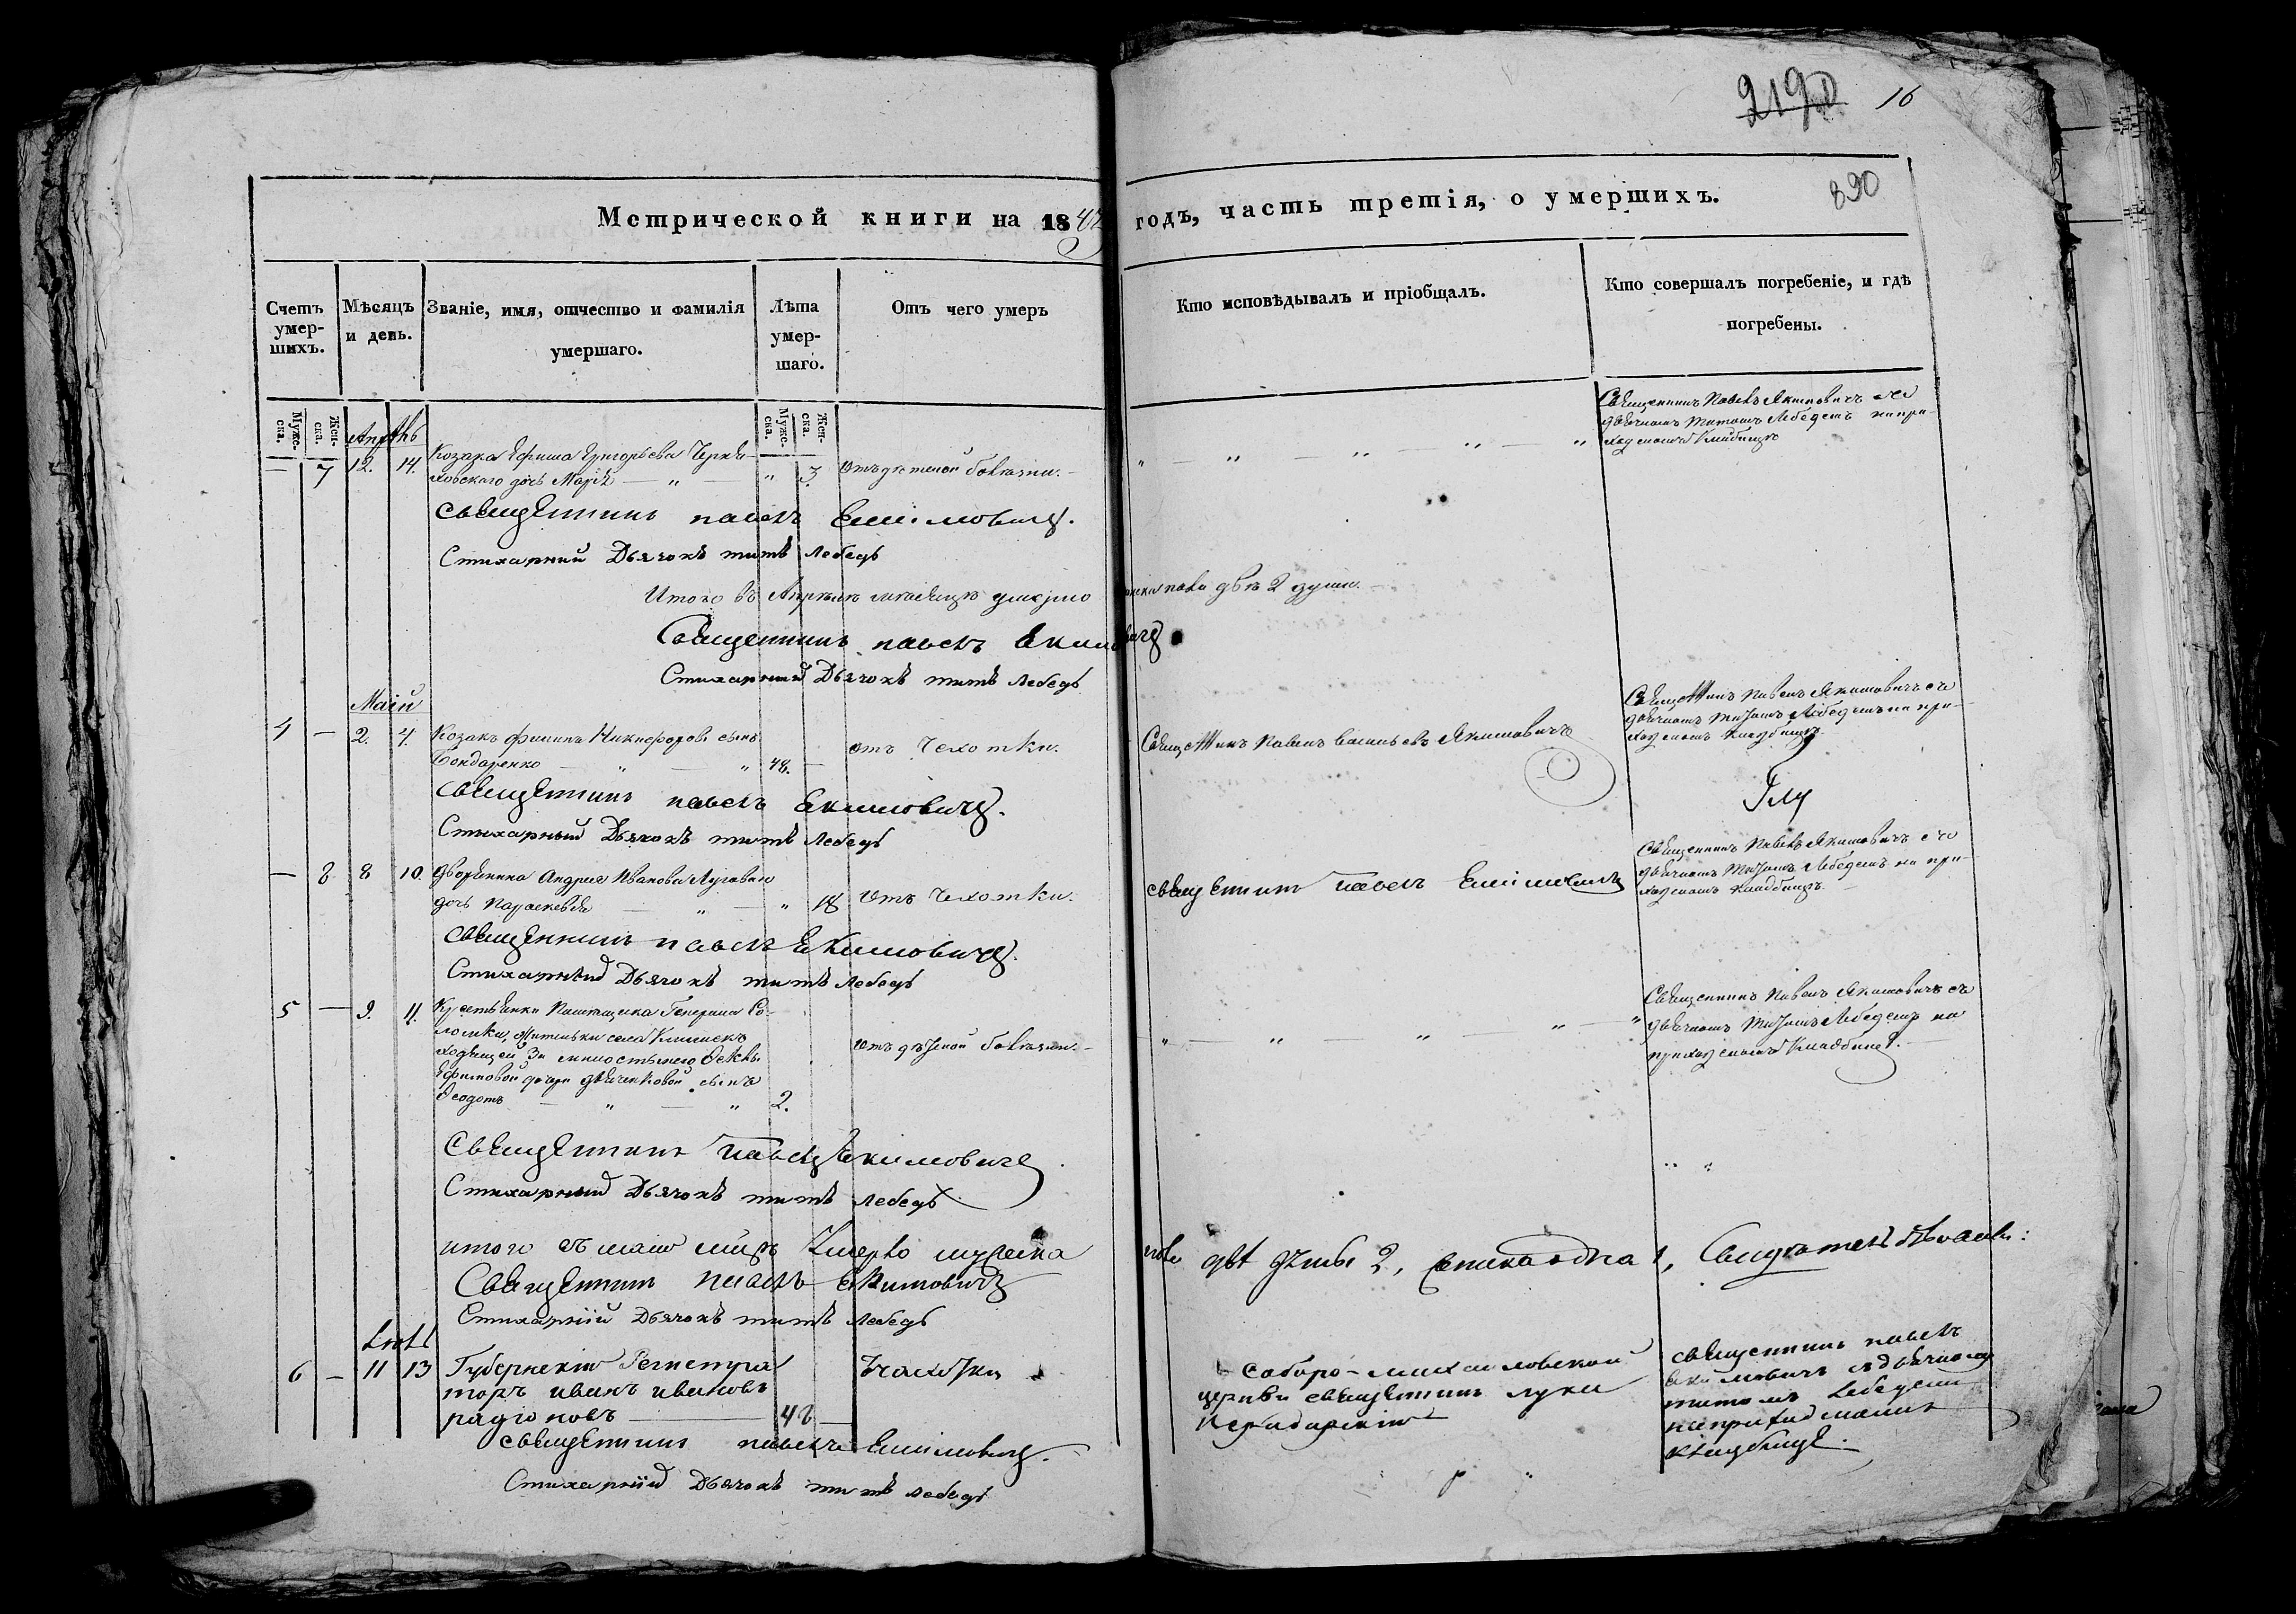 2190 16
890
Метрической книги на 1842 годъ, часть третія, о умершихъ.
Счетъ умер-шихъ.
Мѣсяцъ и день.
Званіе, имя, отчество и фамилія умершаго.
Лѣта умер-шаго.
Отъ чего умеръ
Кто исповѣдывалъ и пріобщалъ.
Кто совершалъ погребеніе, и гдѣ погребены.
Мужс-ска.
Жен-ска.
Мужс-ска.
Жен-ска.
Апрѣль
— 7 12. 14. Козака Ефима Григорьева
дочь Марія — „ — „ 3 Отъ дѣтской болѣзни.
Священникъ Павелъ Якимовичъ съ
дьячкомъ Титомъ Лебедемъ на при-
ходскомъ кладбищѣ
священникъ павелъ Екимовичъ.
Стихарный Дьячокъ титъ Лебедь
Итого въ Апрѣлѣ мѣсяцѣ умерло пола двѣ 2 души.
Священникъ павелъ Екимовичъ
Стихарный Дьячокъ титъ Лебедь
Маій
4 — 2. 4. Козакъ Филипъ Никифоровъ сынъ
Бондаренко — „ — „ 48. — отъ Чахотки.
Священникъ Павелъ Васильевъ Якимовичъ
Священникъ Павелъ Якимовичъ съ
дьячкомъ Титомъ Лебедемъ на при-
ходскомъ кладбищѣ
священникъ павелъ Екимовичъ.
Стихарный Дьячокъ титъ Лебедь
— 8 8 10. Дворянина Андрея Иванова
дочь Параскевія — „ — „ 18 Отъ Чахотки.
священникъ павелъ Екимовичъ
Священникъ Павелъ Якимовичъ съ
дьячкомъ Титомъ Лебедемъ на при-
ходскомъ кладбищѣ.
священникъ павелъ Екимовичъ.
Стихарный Дьячокъ титъ Лебедь
5 — 9. 11. Крестьянки Помѣщика
жительки села
Ефимовой дочери сынъ
Ѳеодотъ — „ — „ 2. Отъ дѣтской болѣзни.
Священникъ Павелъ Якимовичъ съ
дьячкомъ Титомъ Лебедемъ на
приходскомъ кладбищѣ.
Священникъ павелъ Екимовичъ
Стихарный Дьячокъ титъ Лебедь
итого въ маію умерло мужеска пола двѣ души 2, женска одна 1,
Священникъ павелъ Екимовичъ
Стихарный Дьячокъ титъ Лебедь
6 — 11 13 Губернскій Регистра
торъ иванъ ивановъ
радіоновъ — 48 — Чахотки
Соборо-михайловской
церкви священникъ лука
священникъ павелъ
екимовичъ съ дьячкомъ
титомъ Лебедемъ
на приходскомъ
кладбищѣ.
священникъ павелъ Екимовичъ.
Стихарный Дьячокъ титъ Лебедь